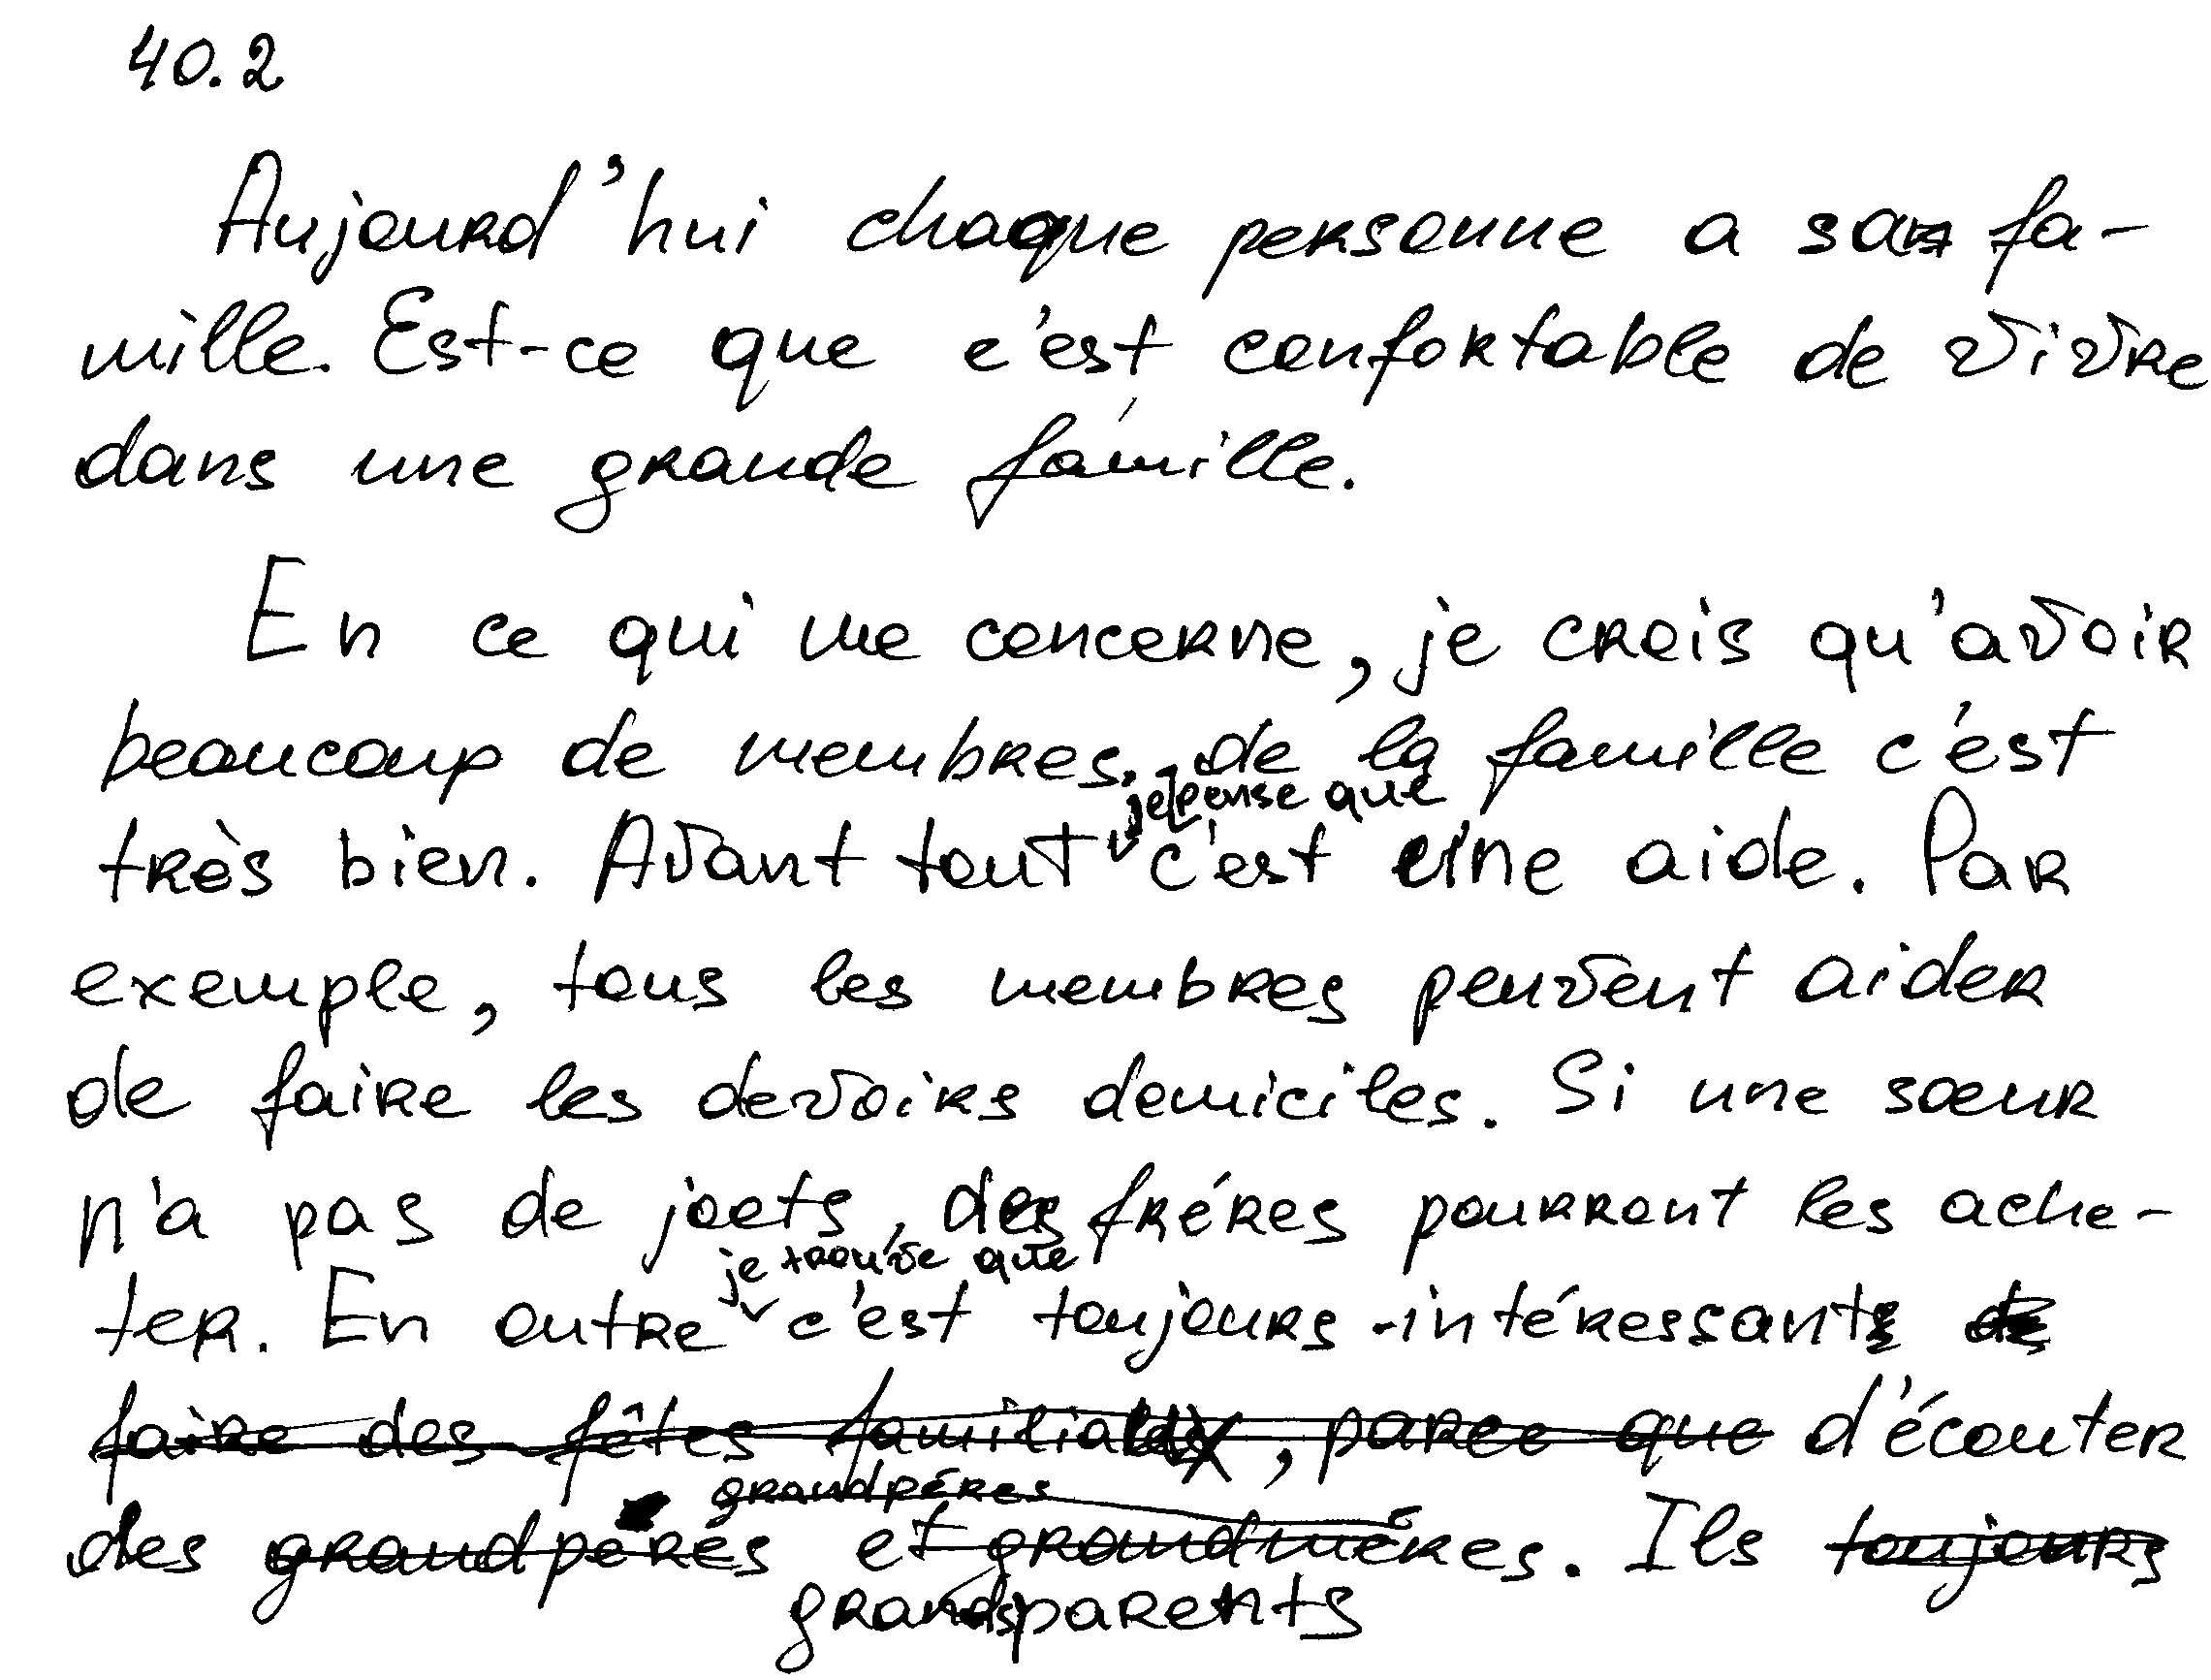 40.2
Aujourd'hui chaque personne a sa fa-
mille. Est-ce que c'est confortable de vivre
dans une grande famille.
En ce qui me concerne, je crois qu'avoir
beaucoup de membres de la famille c'est
je pense que
très bien. Avant tout c'est une aide. Par
exemple, tous les membres peuvent aider
de faire les devoirs domiciles. Si une sœur
n'a pas de joets, des fréres pourront les ache-
je trouve que
ter. En outre c'est toujours intéressant de
faire des fêtes familiaux, parce que d'écouter
grandpéres
des grandpéres et grandméres. Ils toujours
grandsparents